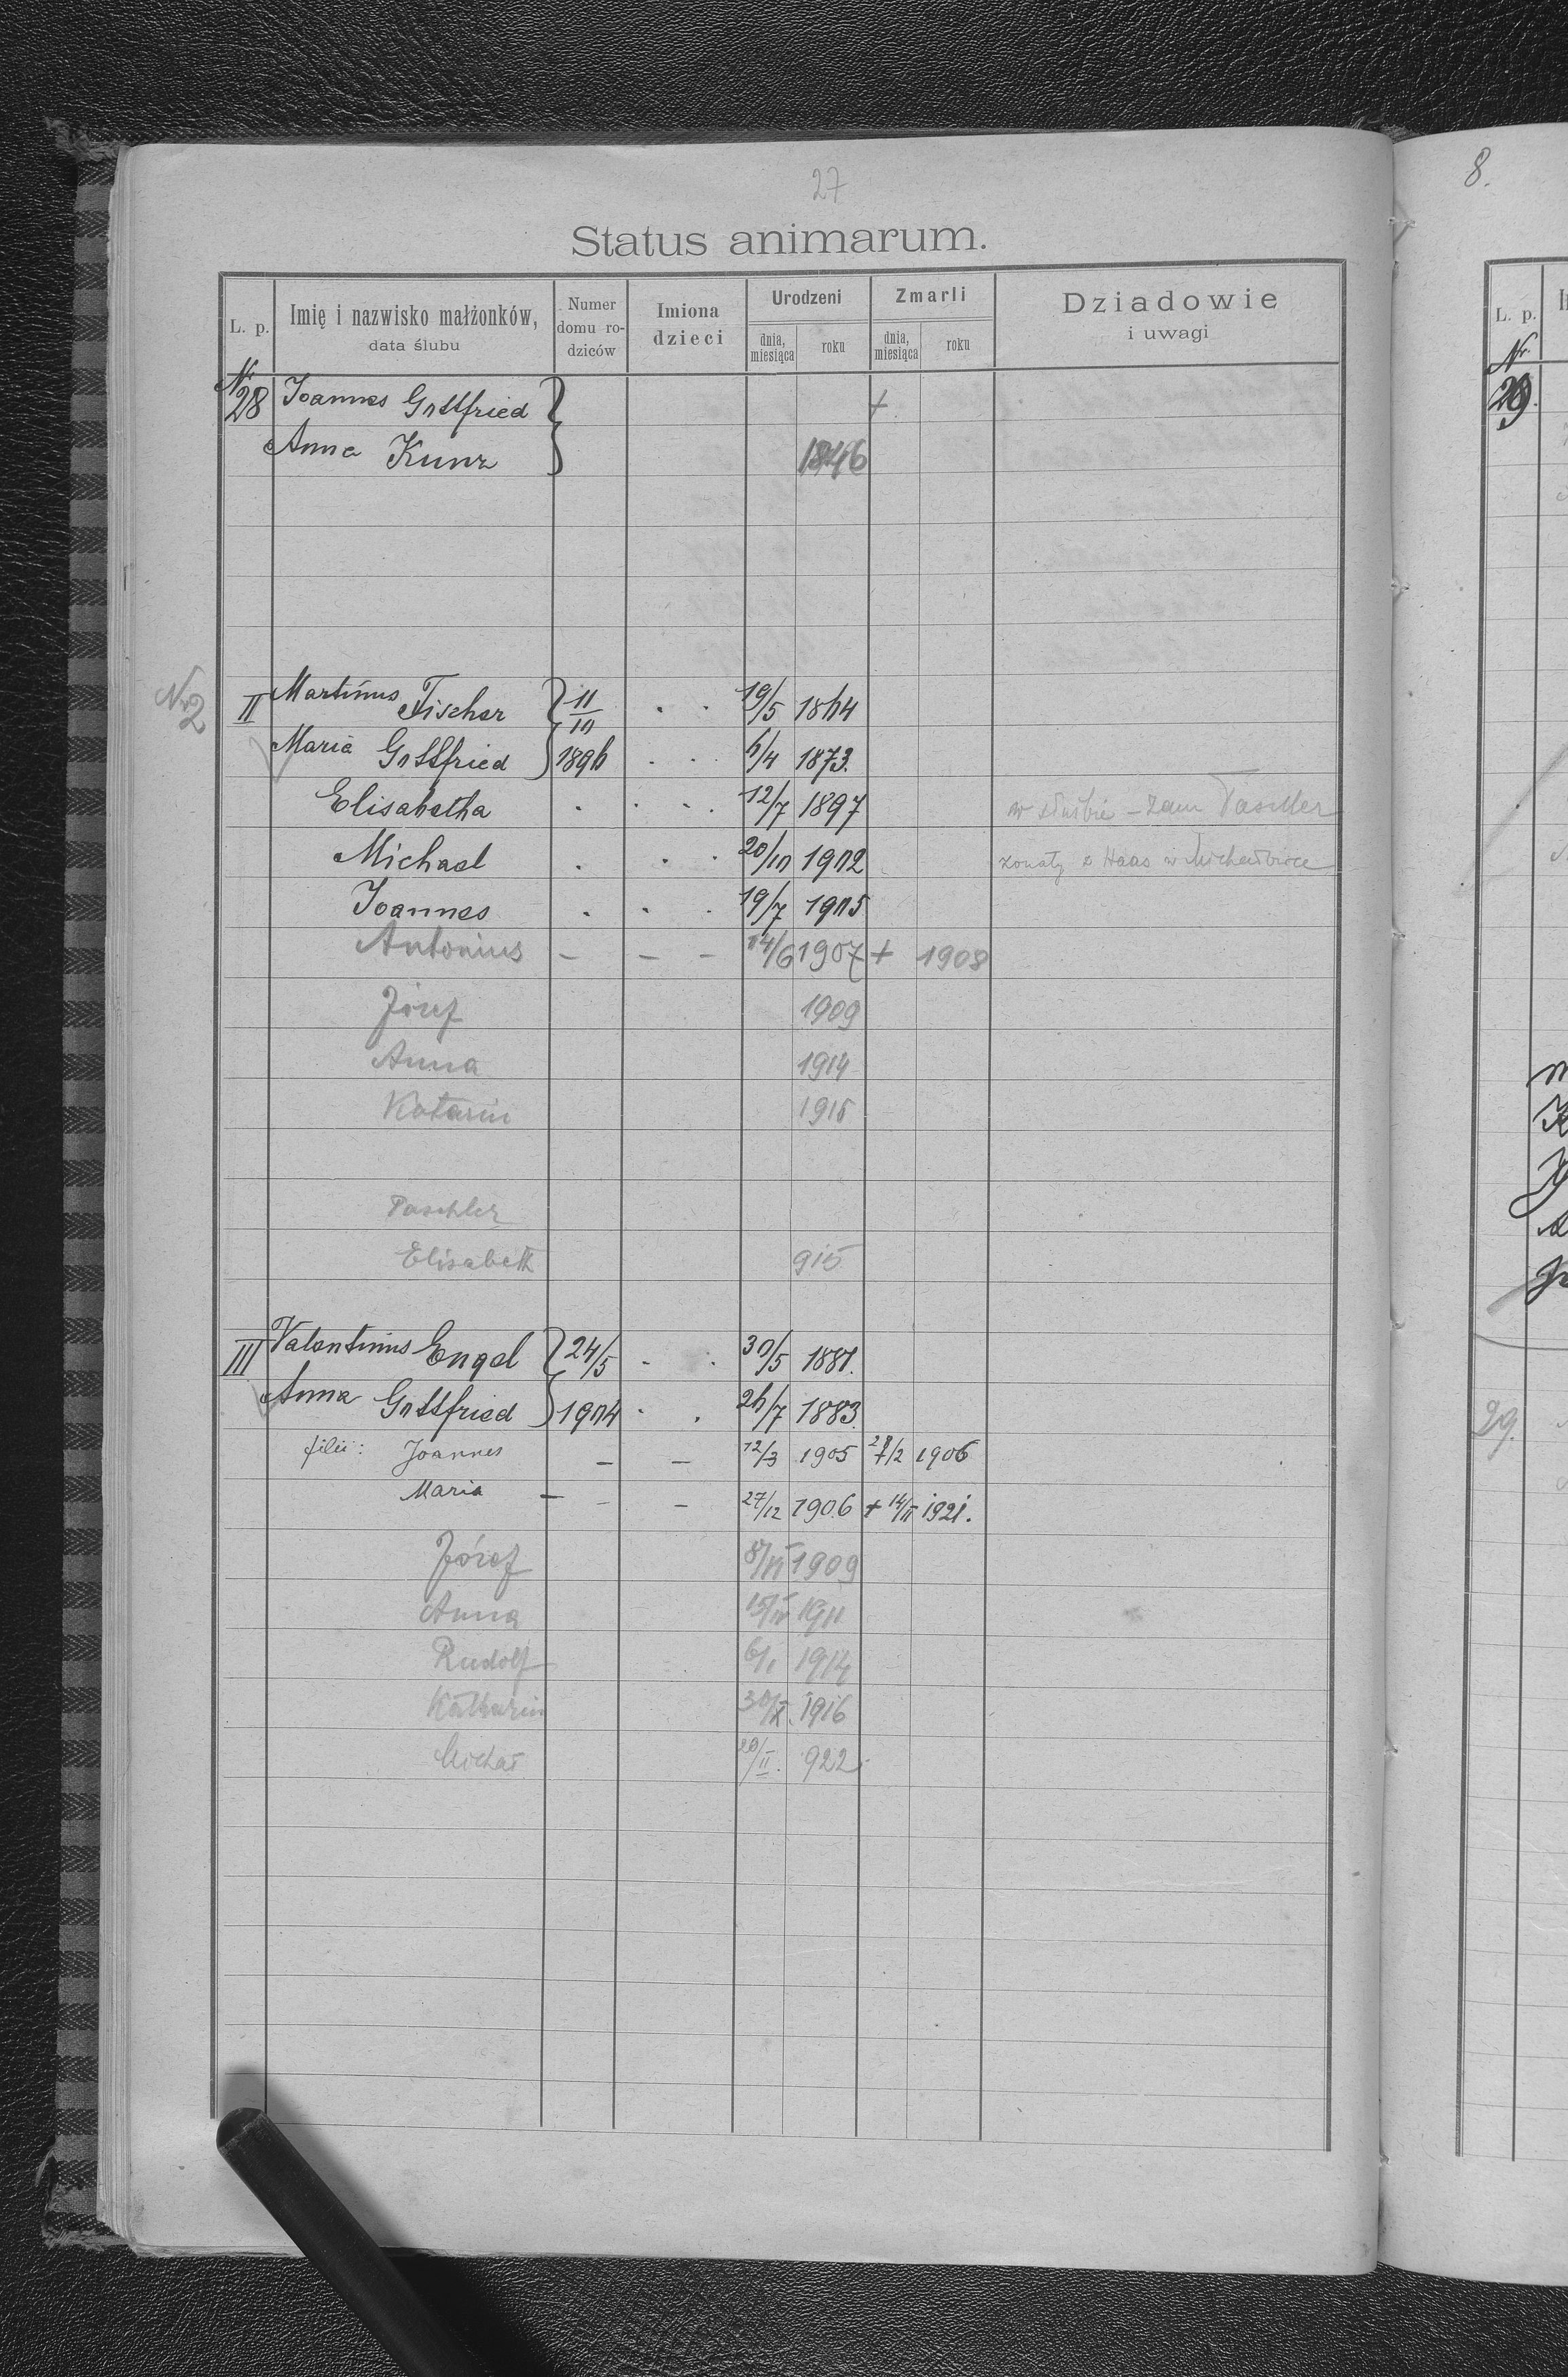 27
Status animarum.
L. p. Imię i nazwisko małżonków, data ślubu Numer domu rodziców Imiona dzieci Urodzeni dnia, miesiąca roku Zmarli dnia, miesiąca roku Dziadowie i uwagi
Nr. 28 Joannes Gottfried +
Anna Kunz 1846
Nr 2 II Martinus Fischer 11/10 . . 19/5 1864
Maria Gottfried 1896 . . 6/4 1873.
Elisabetha . . . . 12/7 1897 w służbie – zam Taschler
Michael . . . 20/10 1902 żonaty z Haas w Michałówce
Joannes . . . 19/7 1905
Antonius – – – 14/6 1907 + 1908
Józef 1909
Anna 1914
Katarin
Paschler
Elisabeth 915
III Valentinus Engel 24/5 . . 30/5 1881.
Anna Gottfried 1904 . . 26/7 1883
filii: Joannes – – 12/3 1905 28/2 1906
Maria – – – 27/12 1906 + 14/II 1921.
Józef 1909
Anna 15/IV 1911
Rudolf 6/1 1914
Katharin 30/X. 1916
Michał 20/II. 922.
8.
L. p.
Nr.
29.
29.